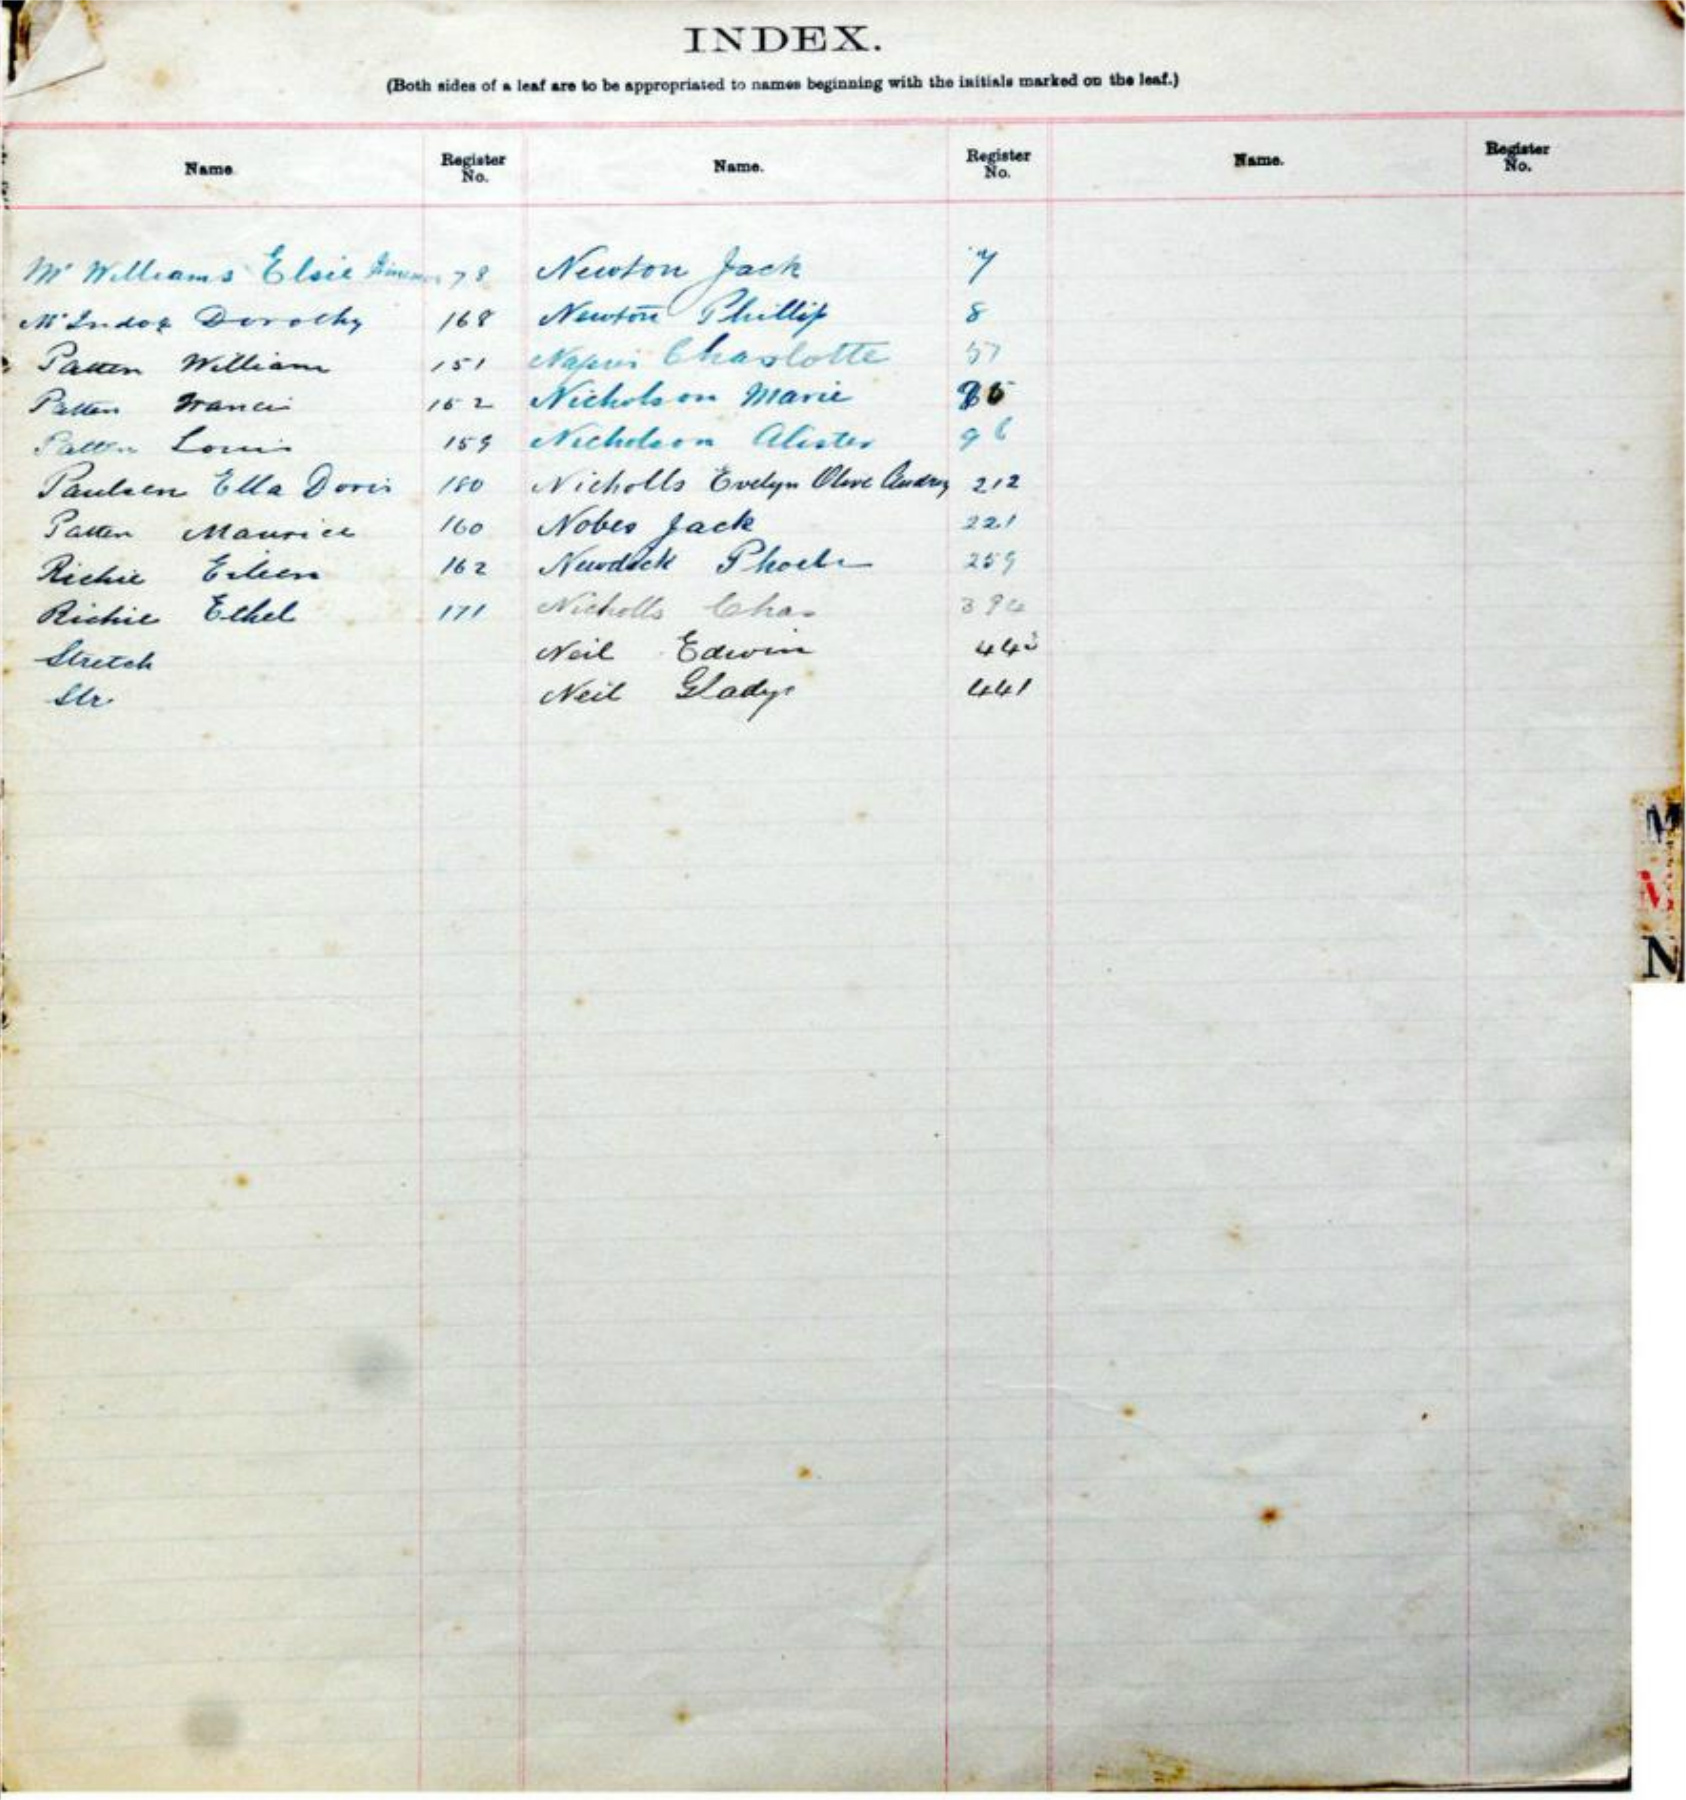 INDEX.
(Both sides of a leaf are to be appropriated to names beginning with the initials marked on the leaf.)
Name Register No. Name. Register No. Name. Register No.
Mc Williams Elsie 78 Newton Jack 7
Dorothy 168 Newton Phillip 8
Patten William 151 Charlotte 57
Patten Francis 152 Nicholson Marie
Patten Louis 159 Nicholson Alister 96
Paulsen Ella Doris 180 Nicholls Evelyn Olive Audrey 212
Patten Maurice 160 Nobes Jack 221
Richie Eileen 162 Newdick Phoebe 259
Richie Ethel 171 Nicholls Chas
Stretch Neil Edwin
Str Neil Gladys 441
M
N